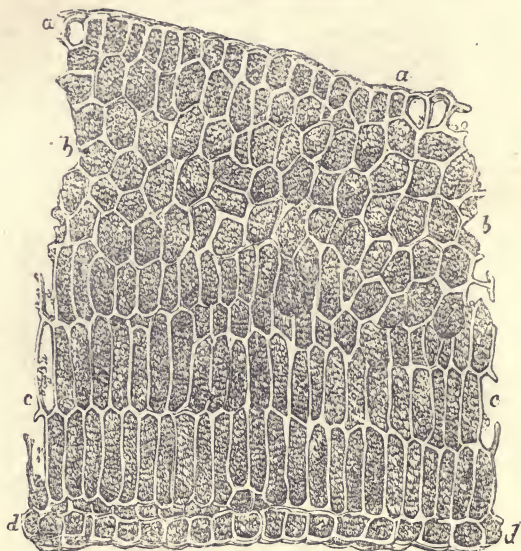 a
a
b
b
c
c
d
d